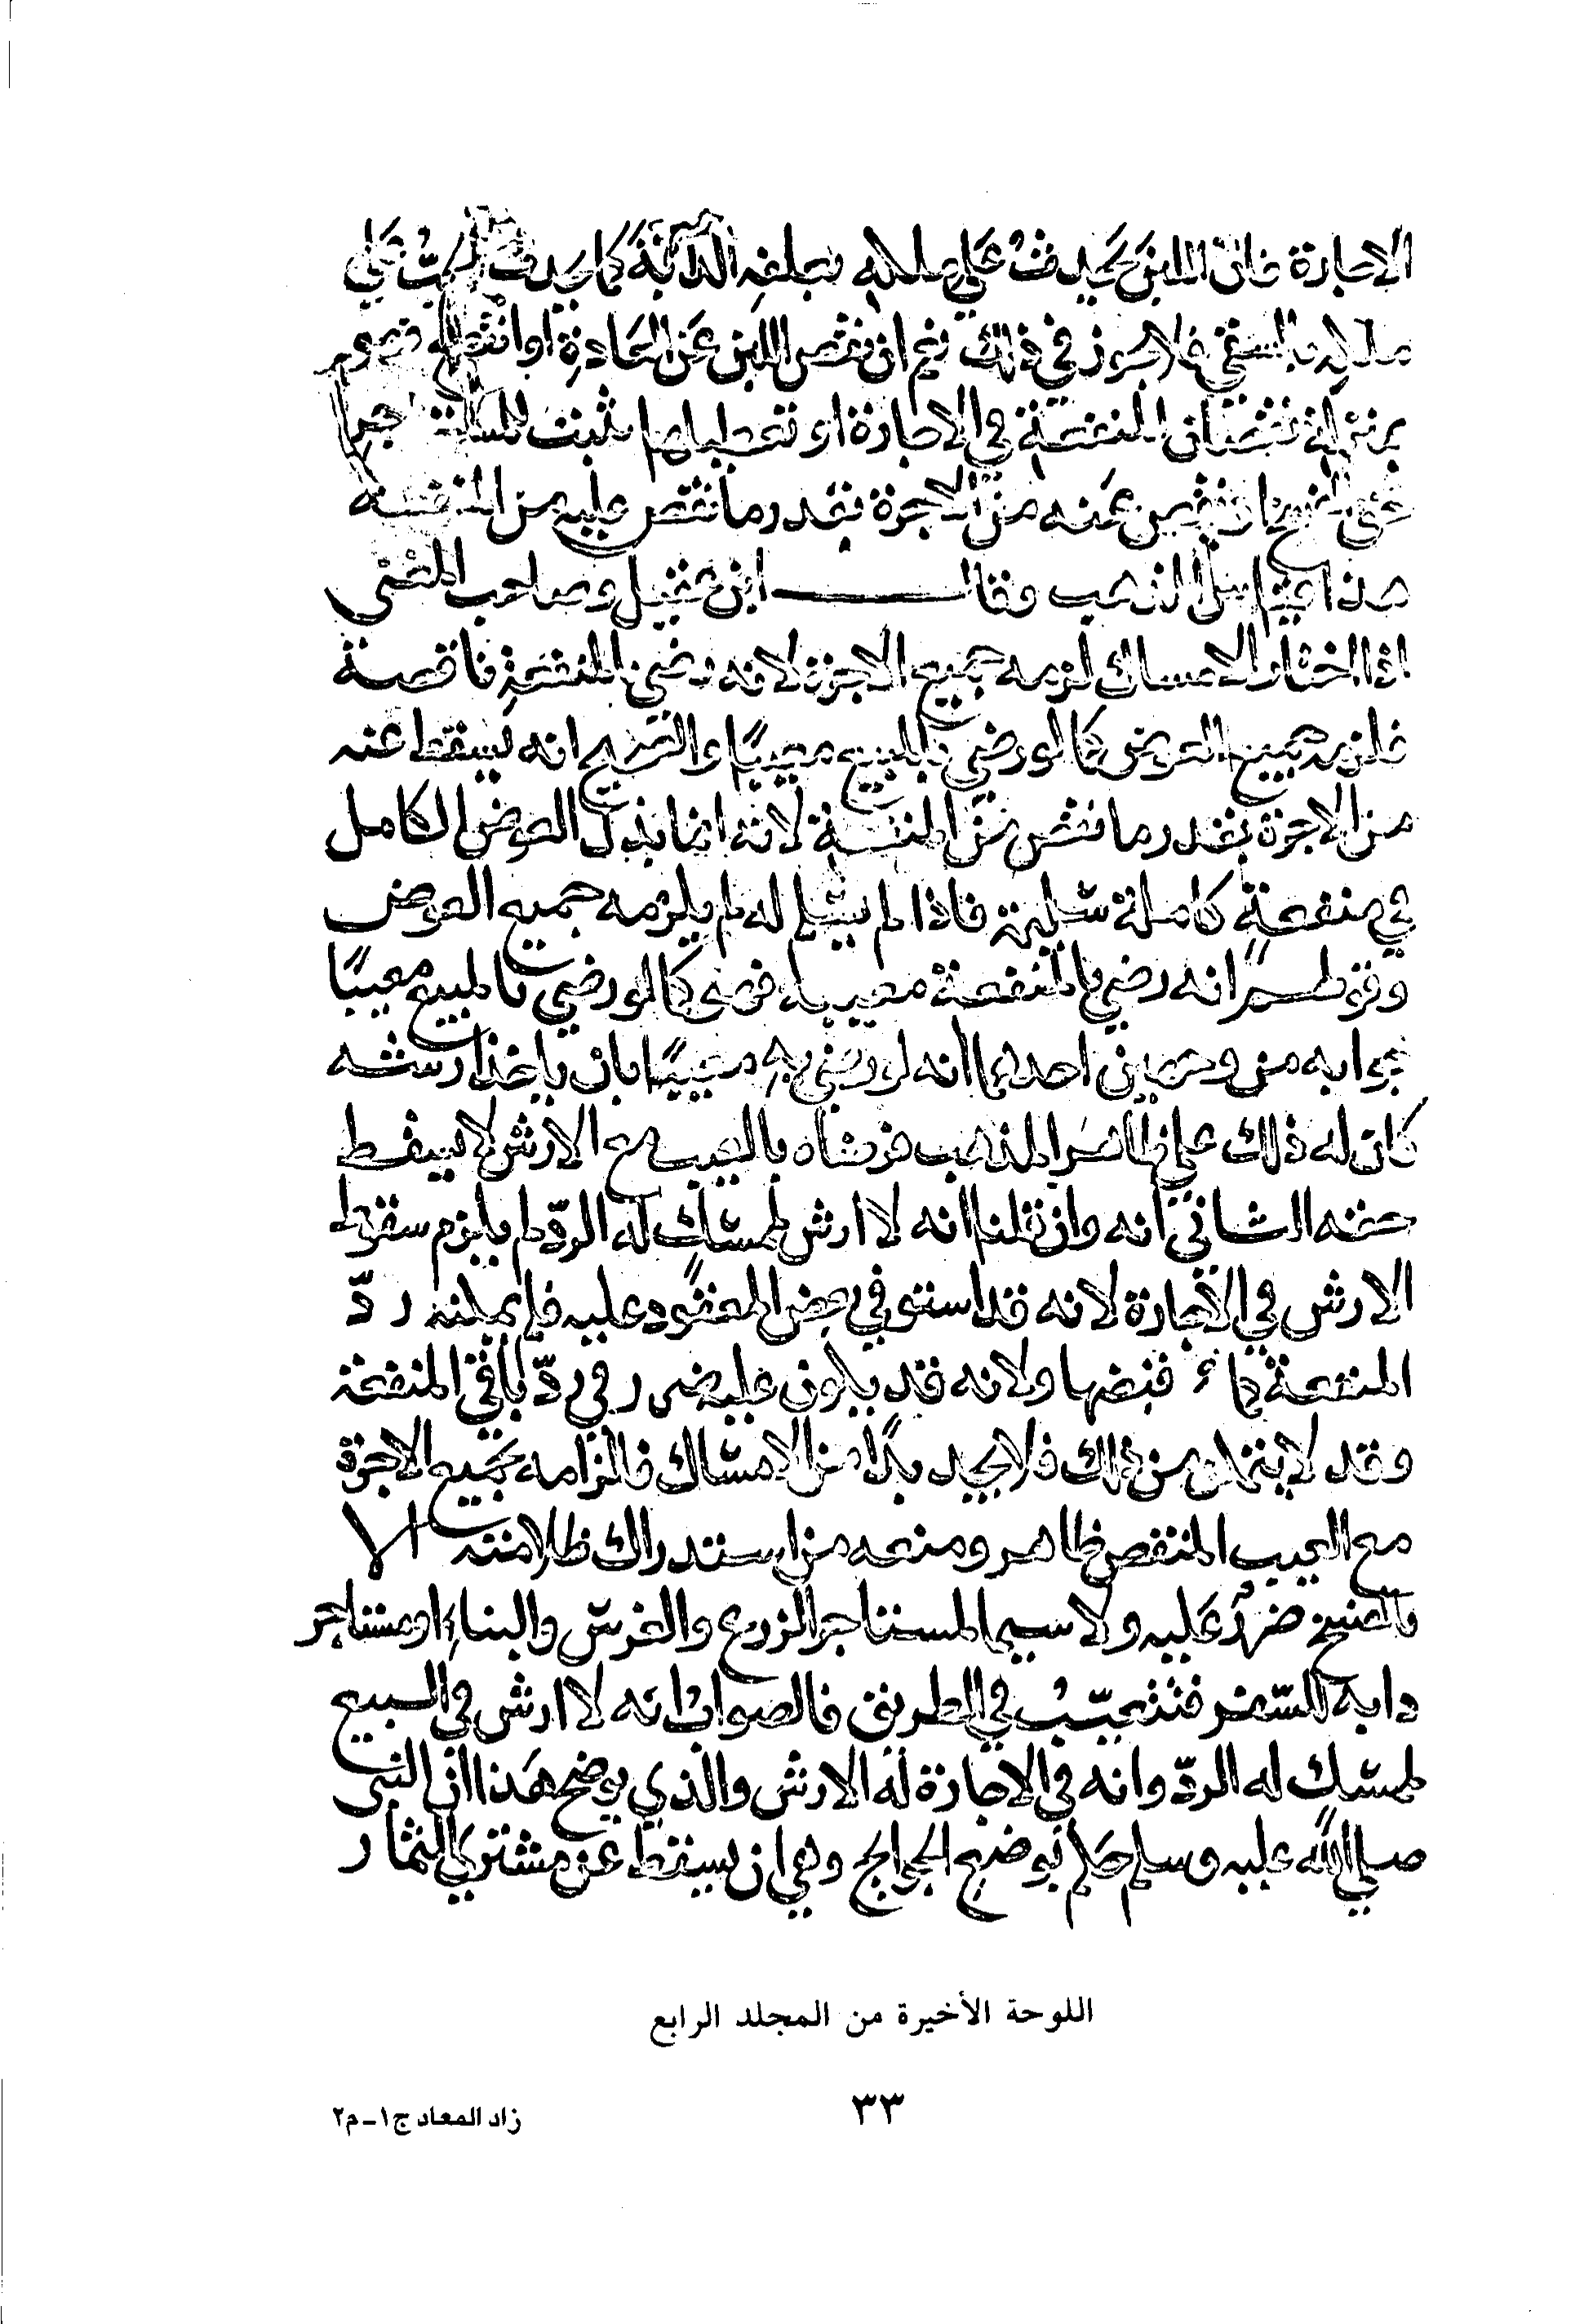 الاجارة فان اللبن يحدث على ملكه بعلفه الدابة كما يحدث الحب على
ملكه بالسقي فلا يجوز في ذلك نعم ان نقص اللبن عن العادة او انقطع فهو
بمنزلة نقصان المنفعة في الاجارة او تعطيلها يثبت للمستاجر
حق الفسخ او ينقص عنه من الاجرة بقدر ما نقص عليه من المنفعة
هذا قياس المذهب وقال ابن عقيل وصاحب المغني
اذا اختار الامساك لزمه جميع الاجرة لانه رضي بالمنفعة ناقصة
فلزمه جميع العوض كما لو رضي بالمبيع معيبًا والصحيح انه يسقط عنه
من الاجرة بقدر ما نقص من المنفعة لانه انما بذل العوض الكامل
في منفعة كاملة سليمة فاذا لم تسلم له لم يلزمه جميع العوض
وقولهم انه رضي بالمنفعة معيبة فهو كما لو رضي بالمبيع معيبًا
جوابه من وجهين احدهما انه لو رضي به معيبًا بان ياخذ ارشه
كان له ذلك على ظاهر المذهب فرضاه بالعيب مع الارش لا يسقط
حقه الثاني انه وان قلنا انه لا ارش لممسك له الردّ لم يلزم سقوط
الارش في الاجارة لانه قد استوفى بعض المعقود عليه فلم يمكنه ردّ
المنفعة كما قبضها ولانه قد يكون عليه ضرر في ردّ باقي المنفعة
وقد لا يتمكن من ذلك فلا يجد بدًّا من الامساك فالزامه بجميع الاجرة
مع العيب المنقص ظاهر ومنعه من استدراك ظلامته الا
بالفسخ ضررٌ عليه ولا سيما لمستاجر الزرع والغرس والبناء او مستاجر
دابة للسّفر فتتعيّبُ في الطريق فالصواب انه لا ارش في المبيع
لممسك له الردّ وانه في الاجارة له الارش والذي يوضح هذا ان النبي
صلى الله عليه وسلم حكم بوضع الجوايح وهي ان يسقط عن مشتري الثمار
اللوحة الأخيرة من المجلد الرابع
٣٣
زاد المعاد ج١-م٢